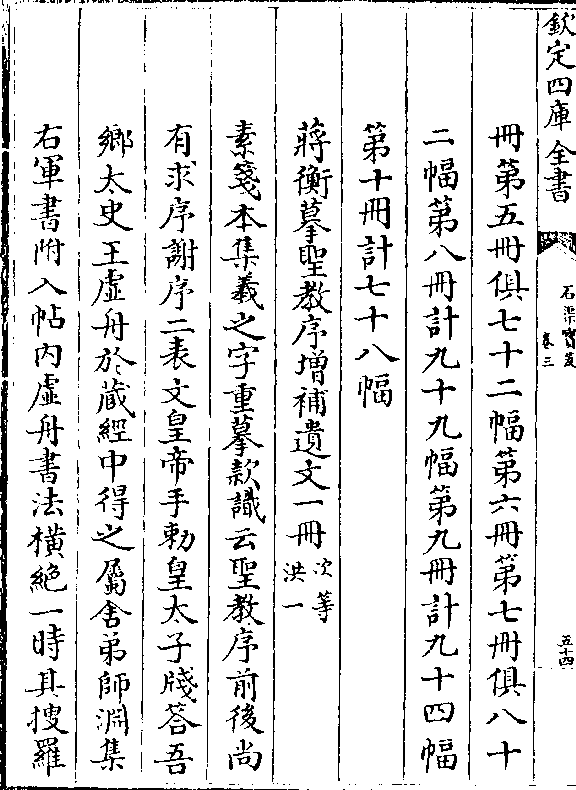 欽定四庫全書
石渠寶笈
卷三
五十四
冊第五冊俱七十二幅第六冊第七冊俱八十
二幅第八冊計九十九幅第九冊計九十四幅
第十冊計七十八幅
蔣衡摹聖教序增補遺文一冊次等洪一
素箋本集羲之字重摹款識云聖教序前後尚
有求序謝序二表文皇帝手勅皇太子牋荅吾
鄉太史王虛舟於藏經中得之屬舍弟師淵集
右軍書附入帖内虛舟書法橫絶一時其搜羅